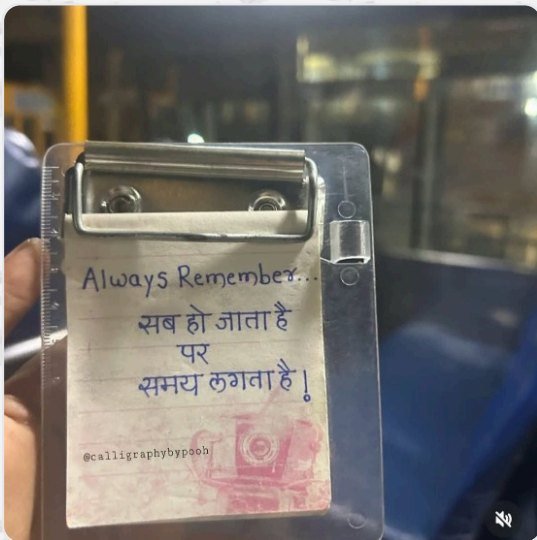 Always Remember...
सब हो जाता है
पर
समय लगता है!
@calligraphybypooh